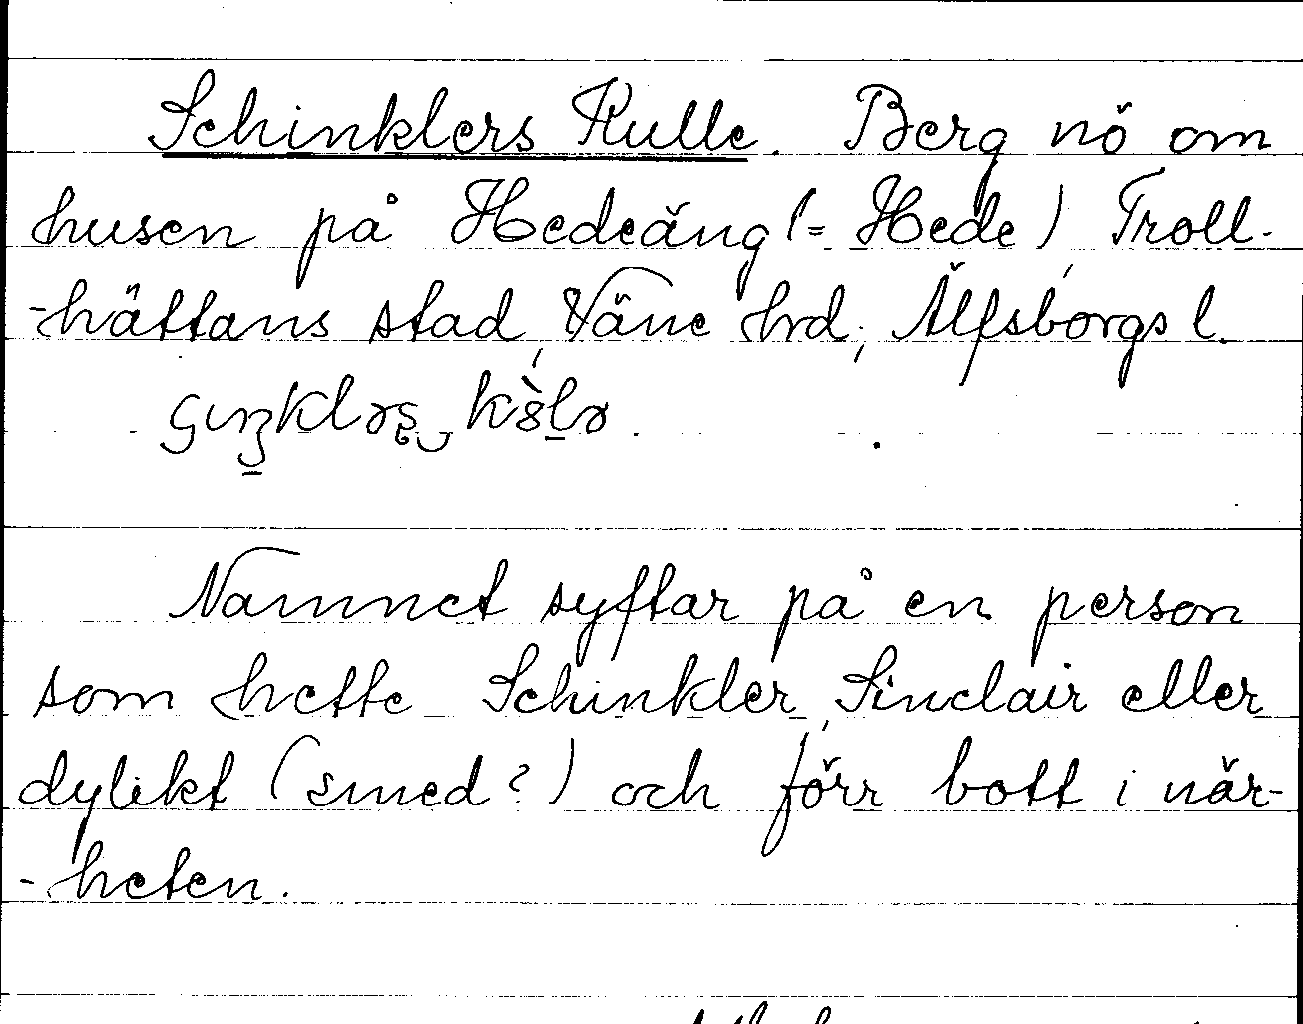 Schinklers Kulle. Berg nö om
husen på Hedeäng (= Hede) Troll-
-hättans stad, Väne hrd, Älfsborgs l.
Namnet syftar på en person
som hette Schinkler, Sinclair eller
dylikt (smed?) och förr bott i när-
-heten.